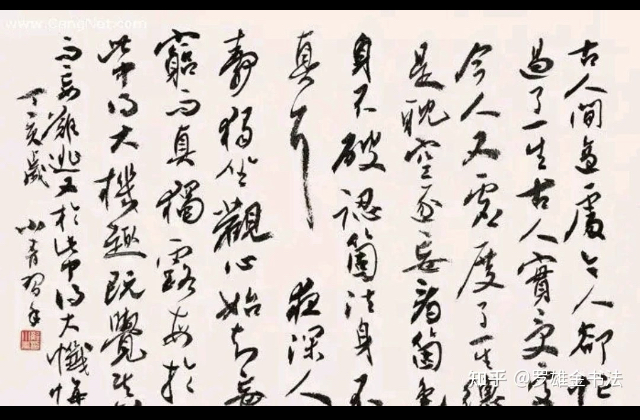 www.CangNet.com
古人閒適處今人卻忙
過了一生古人實受
今人又虛度了一生總
是耽空逐妄看箇色
身不破認箇法身不
真耳 夜深人
靜獨坐觀心始知妄
窮而真獨露每於
此中得大機趣既覺真
而妄難逃又於此中得大懺悔
丁亥歲 小青
知乎 @罗雄金书法